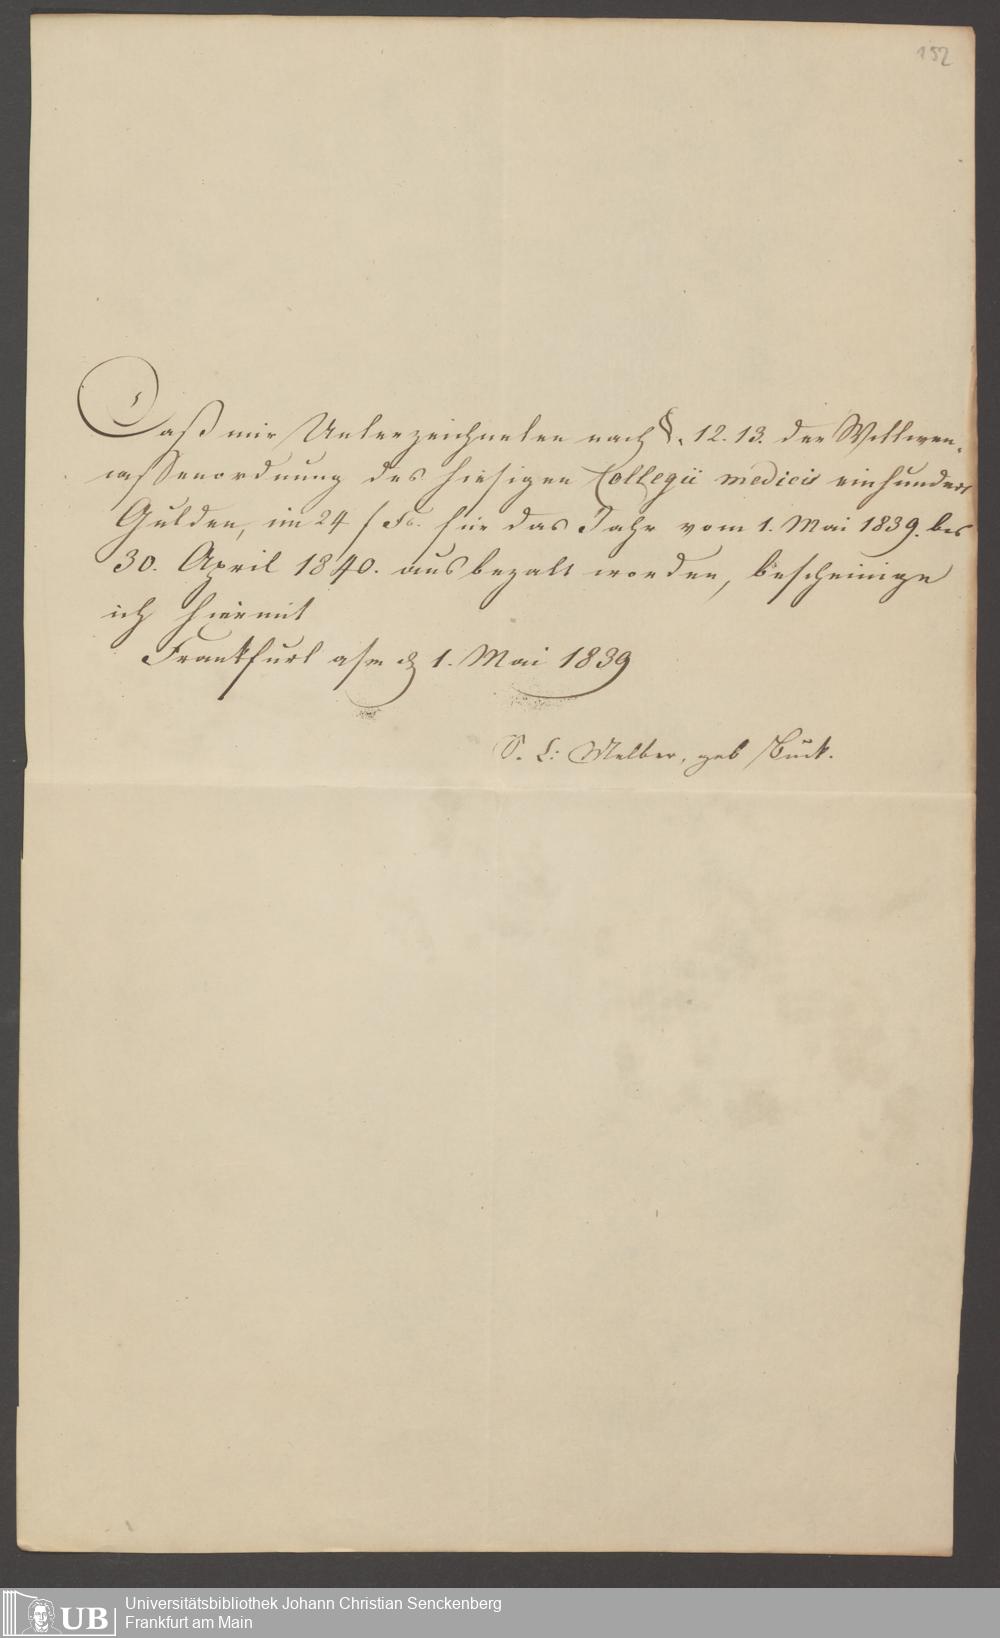 152
Daß mir Unterzeichneten nach §. 12. 13. der Wittwen-
cassenordnung des hiesigen Collegii medicis einhundert
Gulden, im 24 f Fs. für das Jahr vom 1. Mai 1839. bis
30. April 1840. ausbezalt worden, bescheinige
ich hiermit
Frankfurt a/m d 1. Mai 1839
S. L: Melber, geb Buck.
UB
Universitätsbibliothek Johann Christian Senckenberg
Frankfurt am Main